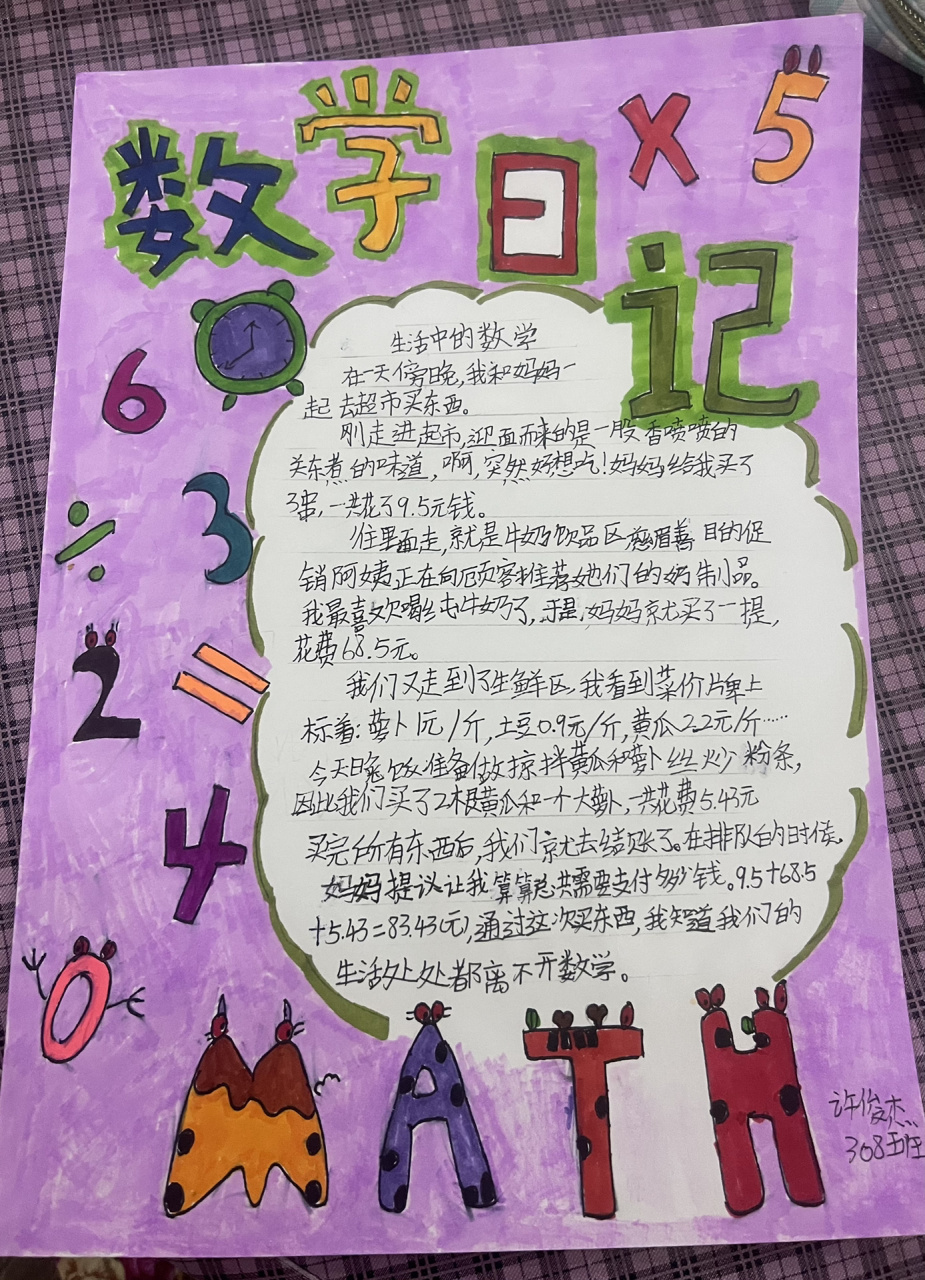 数学日记
× 5
6
÷ 3
2 =
4
0
生活中的数学
在一天傍晚,我和妈妈一
起去超市买东西。
刚走进起市,迎面而来的是一股香喷喷的
关东煮的味道,啊,突然好想吃!妈妈给我买了
3串,一共花了9.5元钱。
往里面走,就是牛奶饮品区,慈眉善目的促
销阿姨正在向顾客推荐她们的奶制品。
我最喜欢喝纯牛奶了,于是,妈妈就买了一提,
花费68.5元。
我们又走到了生鲜区,我看到菜价牌上
标着:萝卜1元/斤,土豆0.9元/斤,黄瓜2.2元/斤……
今天晚饭准备做凉拌黄瓜和萝卜丝炒粉条,
因此我们买了2根黄瓜和一个大萝卜,一共花费5.43元
买完所有东西后,我们就去结账了。在排队的时候,
妈妈提议让我算算总共需要支付多少钱。9.5+68.5
+5.43=83.43(元),通过这次买东西,我知道我们的
生活处处都离不开数学。
MATH
许俊杰
308班